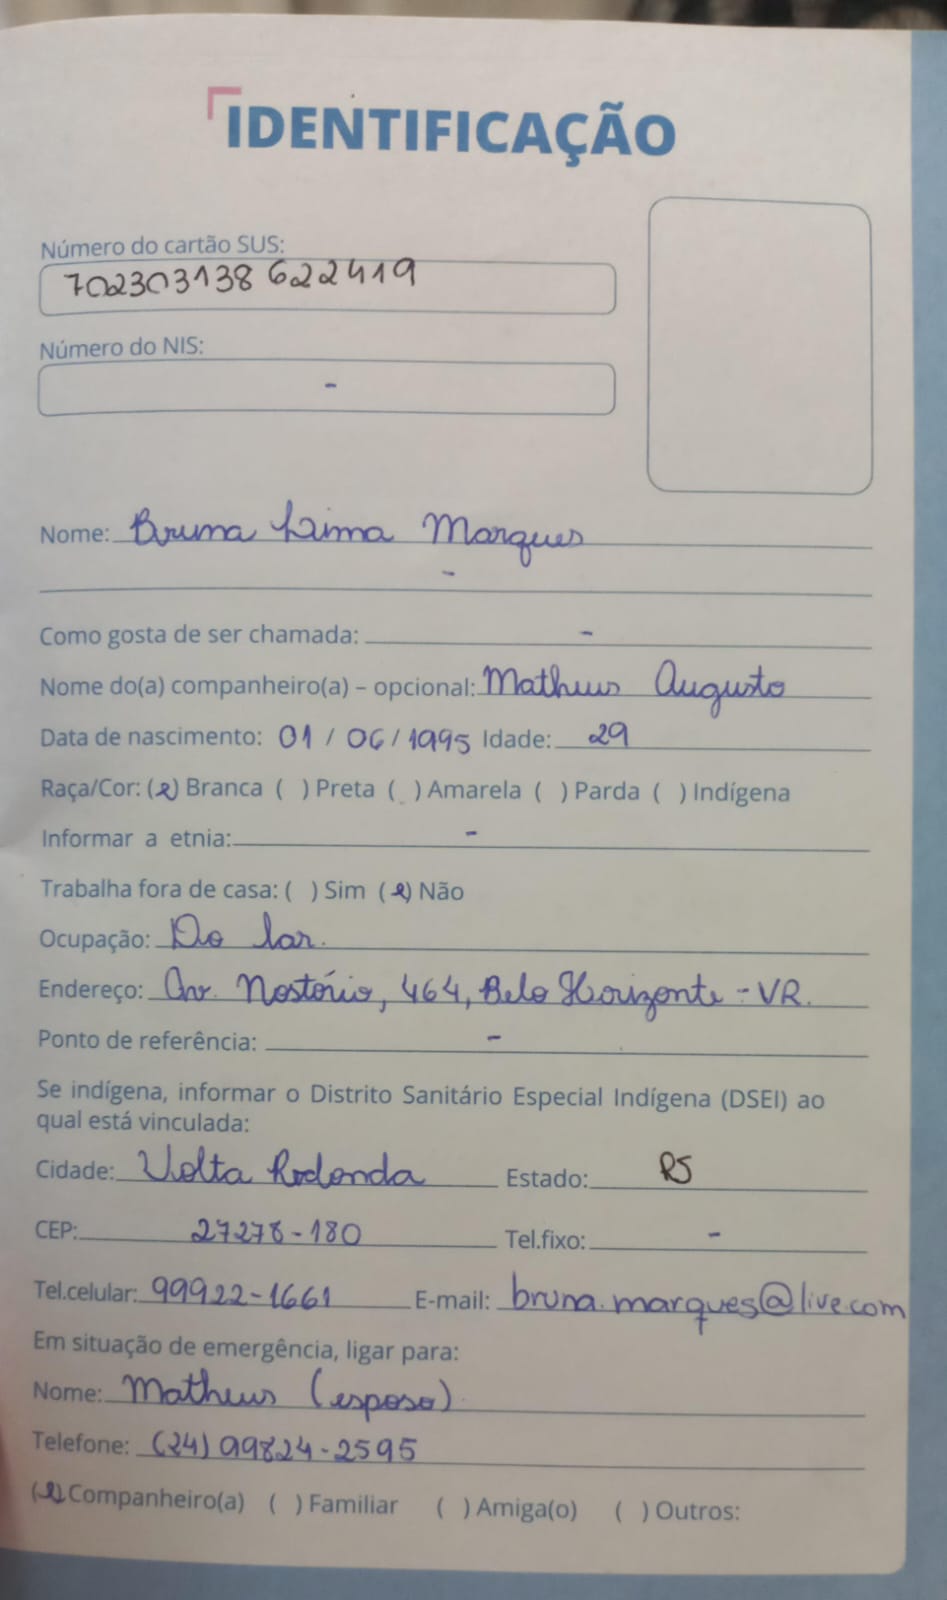 IDENTIFICAÇÃO
Número do cartão SUS:
702303138 622419
Número do NIS:
-
Nome: Bruna Lima Marques
-
Como gosta de ser chamada: -
Nome do(a) companheiro(a) – opcional: Matheus Augusto
Data de nascimento: 01 / 06 / 1995 Idade: 29
Raça/Cor: (x) Branca ( ) Preta ( ) Amarela ( ) Parda ( ) Indígena
Informar a etnia: -
Trabalha fora de casa: ( ) Sim (x) Não
Ocupação: Do lar.
Endereço: Av. Nostório, 464, Belo Horizonte - VR.
Ponto de referência: -
Se indígena, informar o Distrito Sanitário Especial Indígena (DSEI) ao
qual está vinculada:
Cidade: Volta Redonda Estado: RJ
CEP: 27278-180 Tel.fixo: -
Tel.celular: 99922-1661 E-mail: bruna.marques@live.com
Em situação de emergência, ligar para:
Nome: Matheus (esposo)
Telefone: (24) 99824-2595
(x) Companheiro(a) ( ) Familiar ( ) Amiga(o) ( ) Outros: